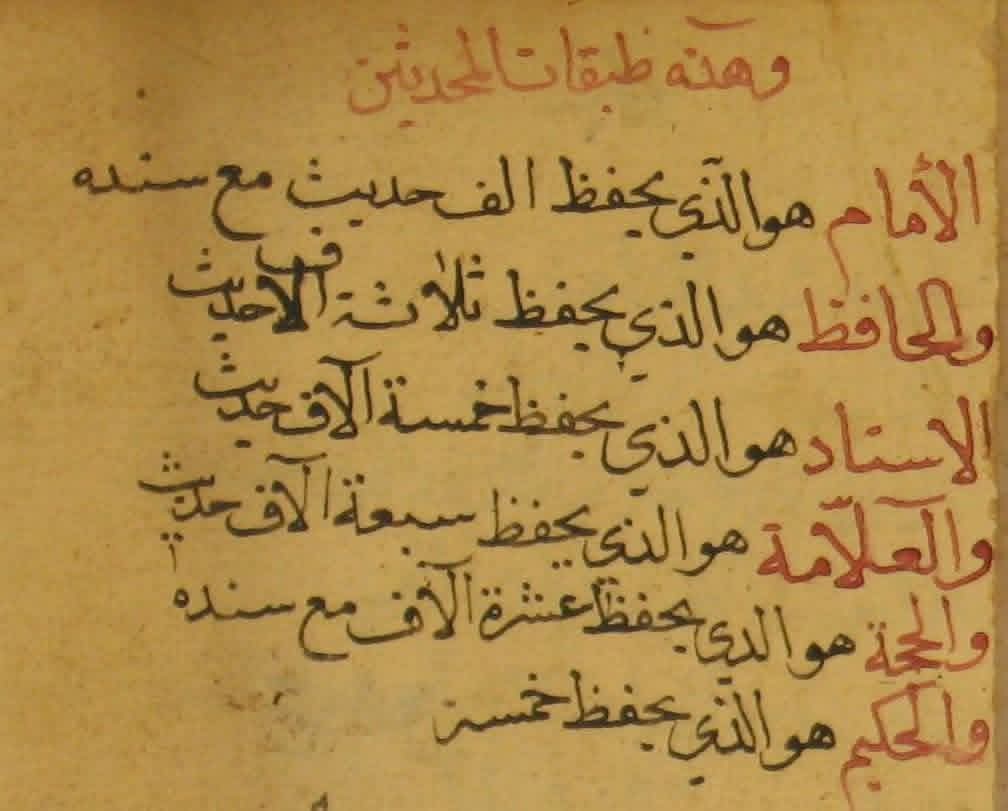 وهذه طبقات المحدثين
الأمام هو الذي يحفظ الف حديث مع سنده
والحافظ هو الذي يحفظ ثلاثة الاف حديث
الاستاد هو الذي يحفظ خمسة آلاف حديث
والعلّامة هو الذي يحفظ سبعة آلاف حديث
والحجة هو الذي يحفظ عشرة آلاف مع سنده
والحكيم هو الذي يحفظ خمسة